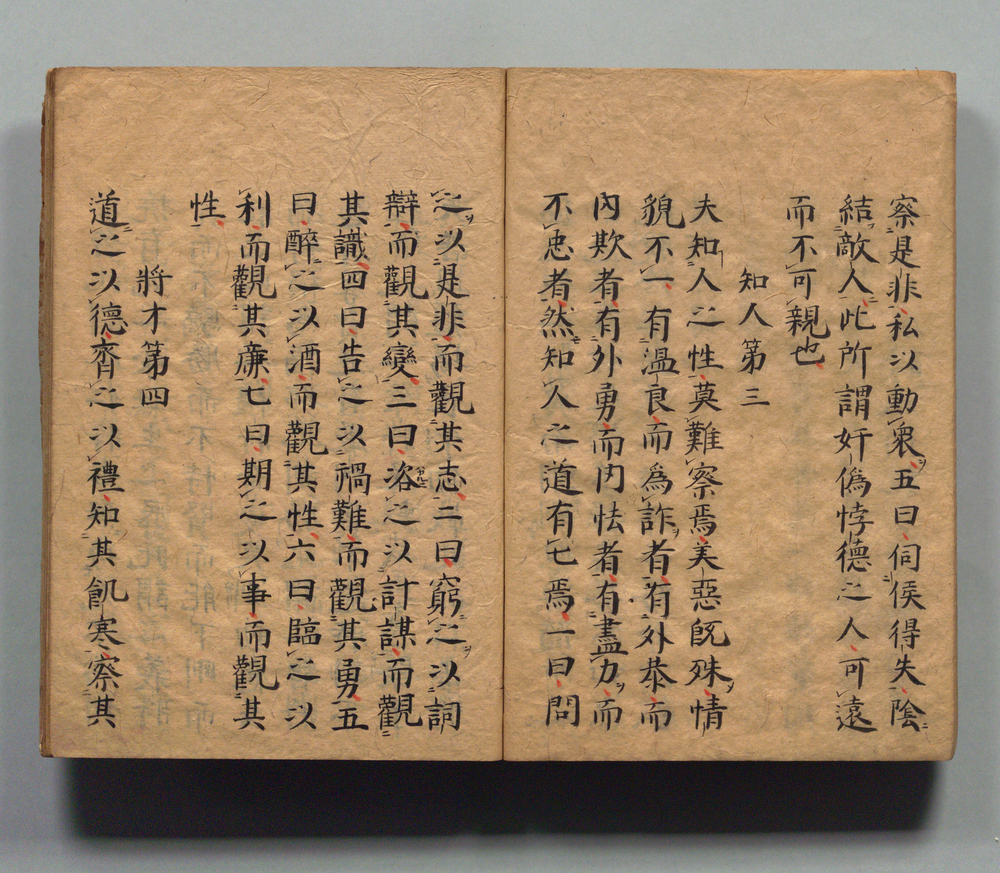 察是非私以動衆五曰伺侯得失陰
結敵人此所謂奸偽悖德之人可遠
而不可親也
知人第三
夫知人之性莫難察焉美惡旣殊情
貌不一有温良而為詐者有外恭而
内欺者有外勇而内怯者有盡力而
不忠者然知人之道有七焉一曰問
之以是非而觀其志二曰窮之以詞
辯而觀其變三曰洛之以計謀而觀
其識四曰告之以禍難而觀其勇五
曰醉之以酒而觀其性六曰臨之以
利而觀其廉七曰期之以事而觀其
性
將才第四
道之以德齊之以禮知其飢寒察其